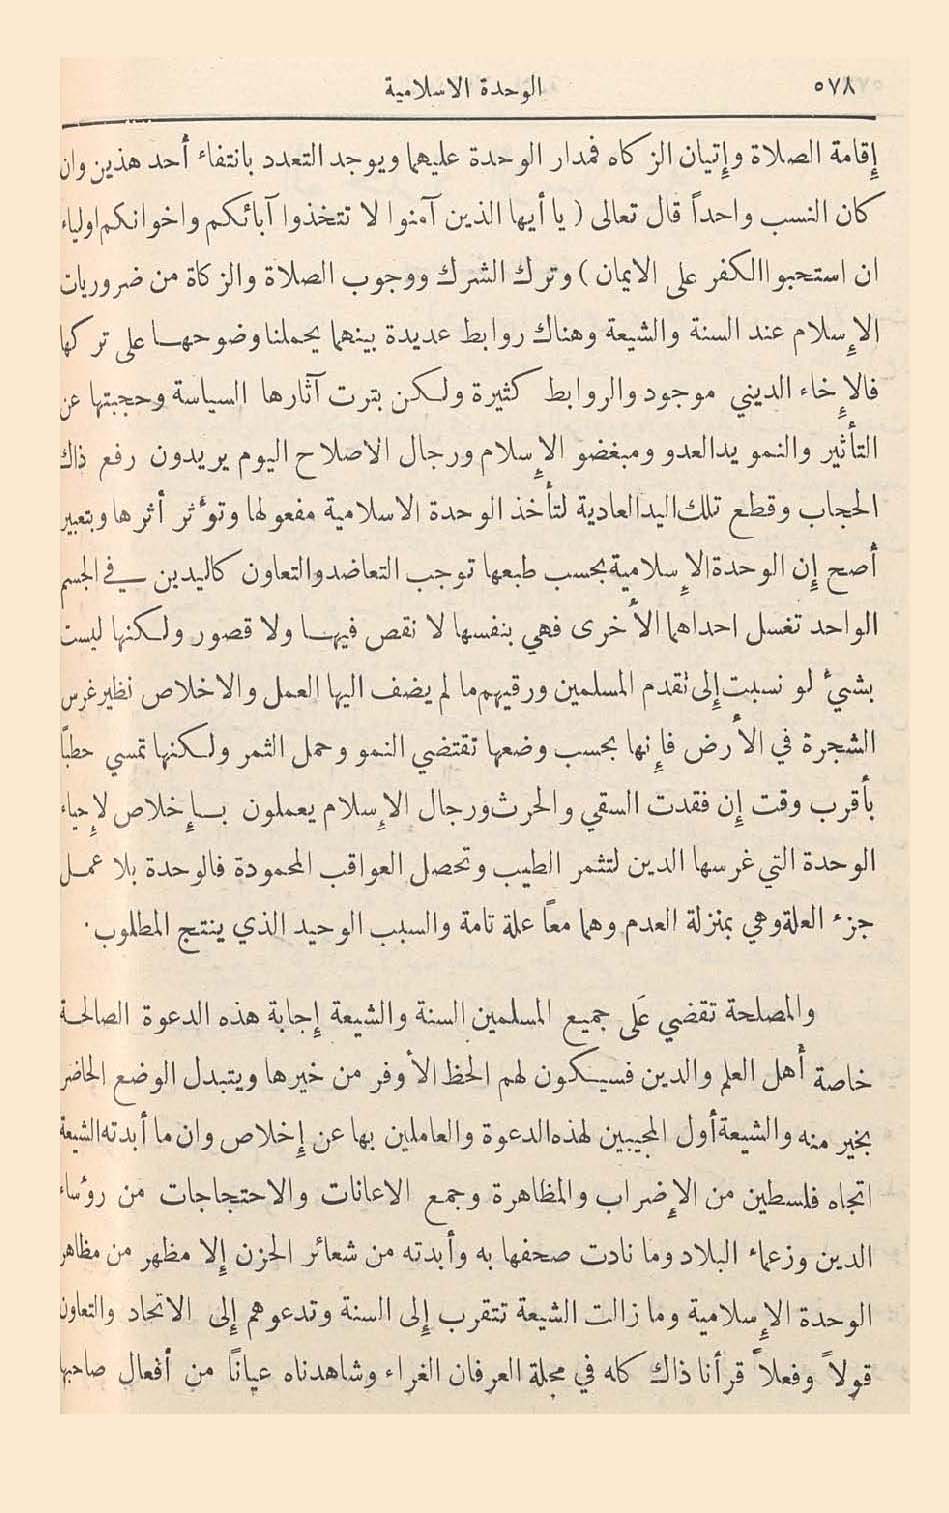 ٥٧٨
الوحدة الاسلامية
إقامة الصلاة وإتيان الزكاه فمدار الوحدة عليهما ويوجد التعدد بانتفاء أحد هذين وان
كان النسب واحداً قال تعالى ( يا أيها الذين آمنوا لا تتخذوا آبائكم واخوانكم اولياء
ان استحبوا الكفر على الايمان ) وترك الشرك ووجوب الصلاة والزكاة من ضروريات
الإسلام عند السنة والشيعة وهناك روابط عديدة بينهما يحملنا وضوحها على تركها
فالإخاء الديني موجود والروابط كثيرة ولكن بترت آثارها السياسة وحجبتها عن
التأثير والنمو يد العدو ومبغضو الإسلام ورجال الاصلاح اليوم يريدون رفع ذاك
الحجاب وقطع تلك اليد العادية لتأخذ الوحدة الاسلامية مفعولها وتوٴثر أثرها وبتعبير
أصح إن الوحدة الإسلامية بحسب طبعها توجب التعاضد والتعاون كاليدين في الجسم
الواحد تغسل احداهما الأخرى فهي بنفسها لا نقص فيها ولا قصور ولكنها ليست
بشيء لو نسبت إلى تقدم المسلمين ورقيهم ما لم يضف اليها العمل والاخلاص نظير غرس
الشجرة في الأرض فإنها بحسب وضعها تقتضي النمو وحمل الثمر ولكنها تمسي حطباً
بأقرب وقت إن فقدت السقي والحرث ورجال الإسلام يعملون بإخلاص لإحياء
الوحدة التي غرسها الدين لتثمر الطيب وتحصل العواقب المحمودة فالوحدة بلا عمل
جزء العلة وهي بمنزلة العدم وهما معاً علة تامة والسبب الوحيد الذي ينتج المطلوب .
والمصلحة تقضي عَلى جميع المسلمين السنة والشيعة إجابة هذه الدعوة الصالحة
خاصة أهل العلم والدين فسيكون لهم الحظ الأوفر من خيرها ويتبدل الوضع الحاضر
بخير منه والشيعة أول المجيبين لهذه الدعوة والعاملين بها عن إخلاص وان ما أبدته الشيعة
اتجاه فلسطين من الإضراب والمظاهرة وجمع الاعانات والاحتجاجات من روٴساء
الدين وزعماء البلاد وما نادت صحفها به وأبدته من شعائر الحزن إلا مظهر من مظاهر
الوحدة الإسلامية وما زالت الشيعة تتقرب إلى السنة وتدعوهم إلى الاتحاد والتعاون
قولاً وفعلاً قرأنا ذاك كله في مجلة العرفان الغراء وشاهدناه عياناً من أفعال صاحبها